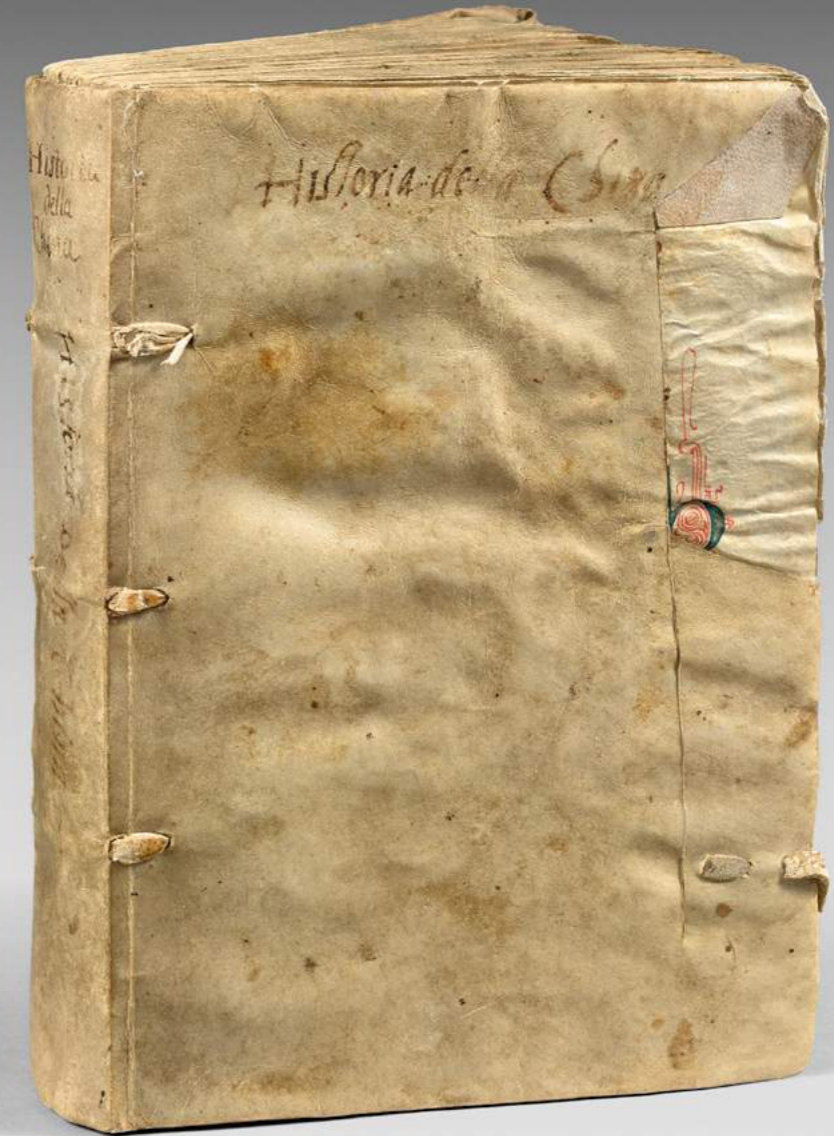 Historia della China
Historia
della
China
Historia Della China